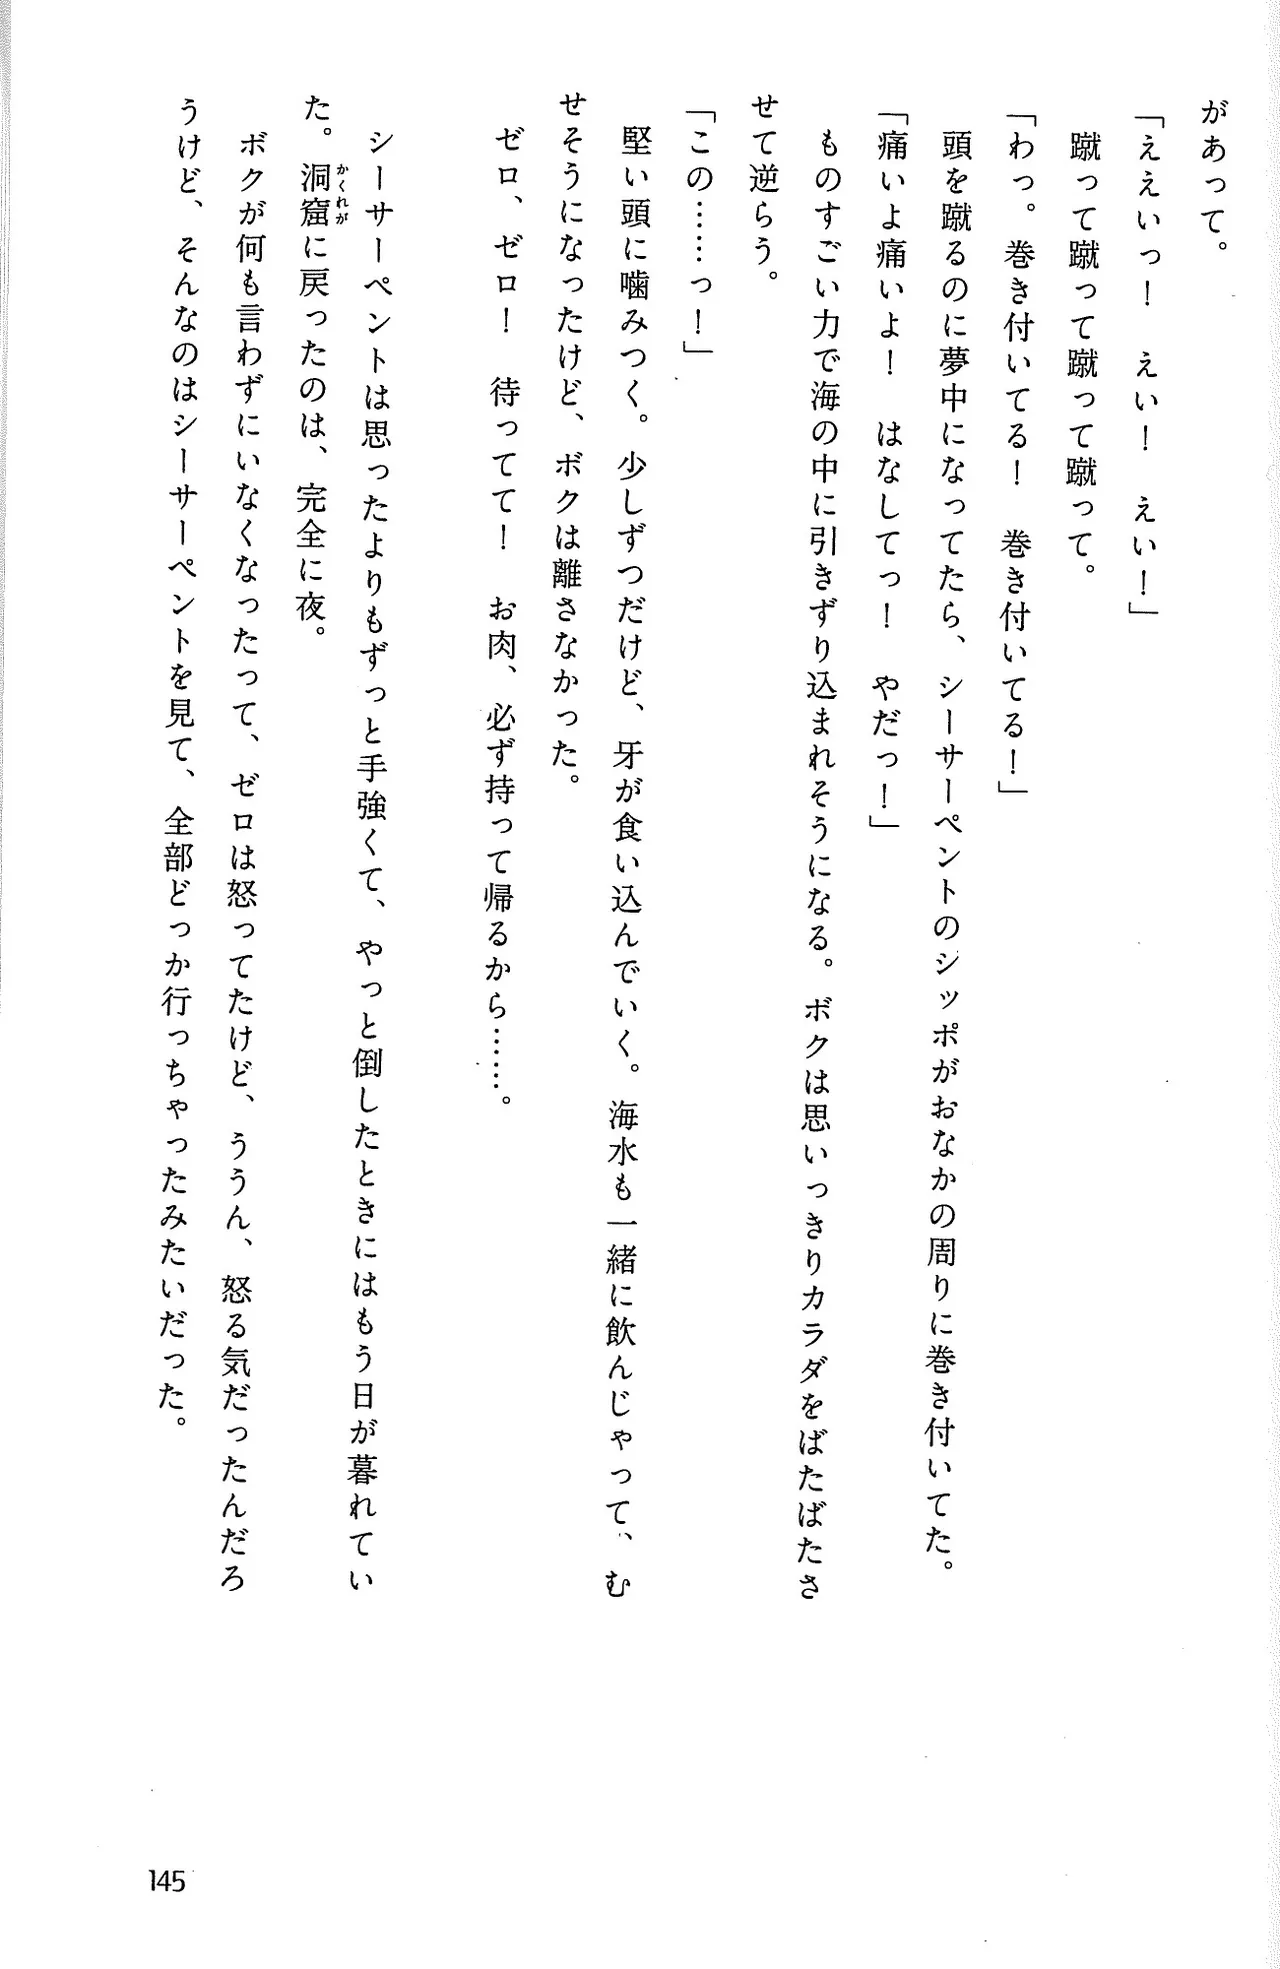 があって。
「ええいっ！　えい！　えい！」
　蹴って蹴って蹴って蹴って。
「わっ。巻き付いてる！　巻き付いてる！」
　頭を蹴るのに夢中になってたら、シーサーペントのシッポがおなかの周りに巻き付いてた。
「痛いよ痛いよ！　はなしてっ！　やだっ！」
　ものすごい力で海の中に引きずり込まれそうになる。ボクは思いっきりカラダをばたばたさ
せて逆らう。
「この……っ！」
　堅い頭に噛みつく。少しずつだけど、牙が食い込んでいく。海水も一緒に飲んじゃって、む
せそうになったけど、ボクは離さなかった。
　ゼロ、ゼロ！　待ってて！　お肉、必ず持って帰るから……。
　シーサーペントは思ったよりもずっと手強くて、やっと倒したときにはもう日が暮れてい
た。洞窟（かくれが）に戻ったのは、完全に夜。
　ボクが何も言わずにいなくなったって、ゼロは怒ってたけど、ううん、怒る気だったんだろ
うけど、そんなのはシーサーペントを見て、全部どっか行っちゃったみたいだった。
145